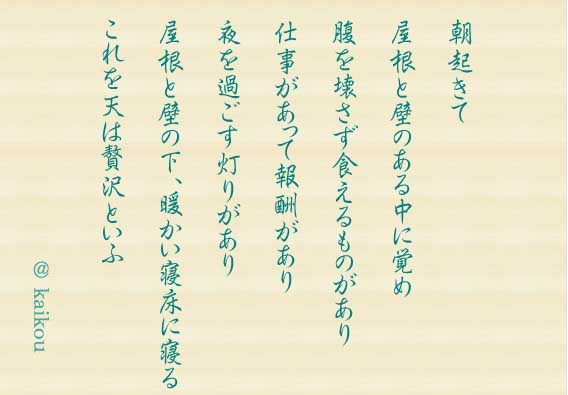 朝起きて
屋根と壁のある中に覚め
腹を壊さず食えるものがあり
仕事があって報酬があり
夜を過ごす灯りがあり
屋根と壁の下、暖かい寝床に寝る
これを天は贅沢といふ
@ kaikou